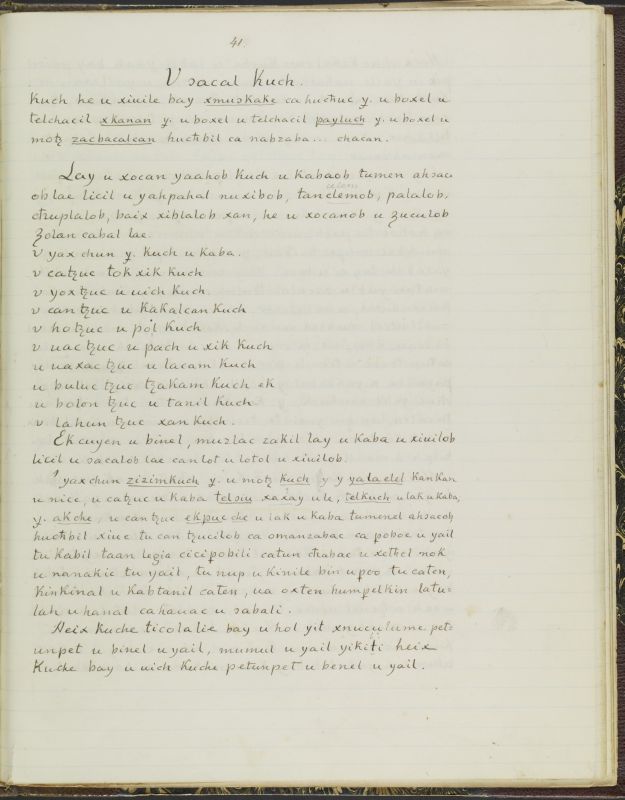 41.
V sacal Kuch.
Kuch he u xiuile bay xmuskake ca huchuc y. u boxel u
telchacil xkanan y. u boxel u telchacil payluch y. u boxel u
motz zacbacalcan huchbil ca nabzaba... chacan.
Lay u xocan yaahob Kuch u Kabaob tumen ahsacu
ob lae licil u yahpahal nuxibob, tanclemob, palalob,
chuplalob, baix xiblalob xan, he u xocanob u zuculob
Zolan cabal lae.
v yax chun y. Kuch u Kaba.
v catzuc tok xik Kuch
v yoxtzuc u uich Kuch.
v can tzuc u KaKalcan Kuch
v ho tzuc u pol Kuch
v uac tzuc u pach u xik Kuch
u uaxac tzuc u lacam Kuch
u buluc tzuc tzakam Kuch ek
u bolon tzuc u tanil Kuch
v lahun tzuc xan Kuch.
Ek cuyen u binel, muzlac zakil lay u Kaba u xiuilob
licil u sacalob lae canlot u lotol u xiuilob.
yaxchun zizimkuch y. u motz Kuch y y yataelel KanKan
u nicc, u catzuc u Kaba telsiu xaxay u le, telkuch u lak u Kaba,
y. ak che, u can tzuc ekpuc che u lak u Kaba tumenel ahsacob,
huchbil xiuc tu can tzucilob ca omanzabac ca poboc u yail
tu Kabil taan legia cicipobili catun chabac u xethel nok
u nanakic tu yail, tu nup u Kinile bin u poo tu caten,
KinKinal u Kabtanil caten, ua oxten humpelkin latu=
lah u hanal cahauac u sabali.
Heix Kuche ticolalie bay u hol yit xnuculume pet=
unpet u binel u yail, mumul u yail yikiti heix
Kuche bay u uich Kuche petunpet u benel u yail.